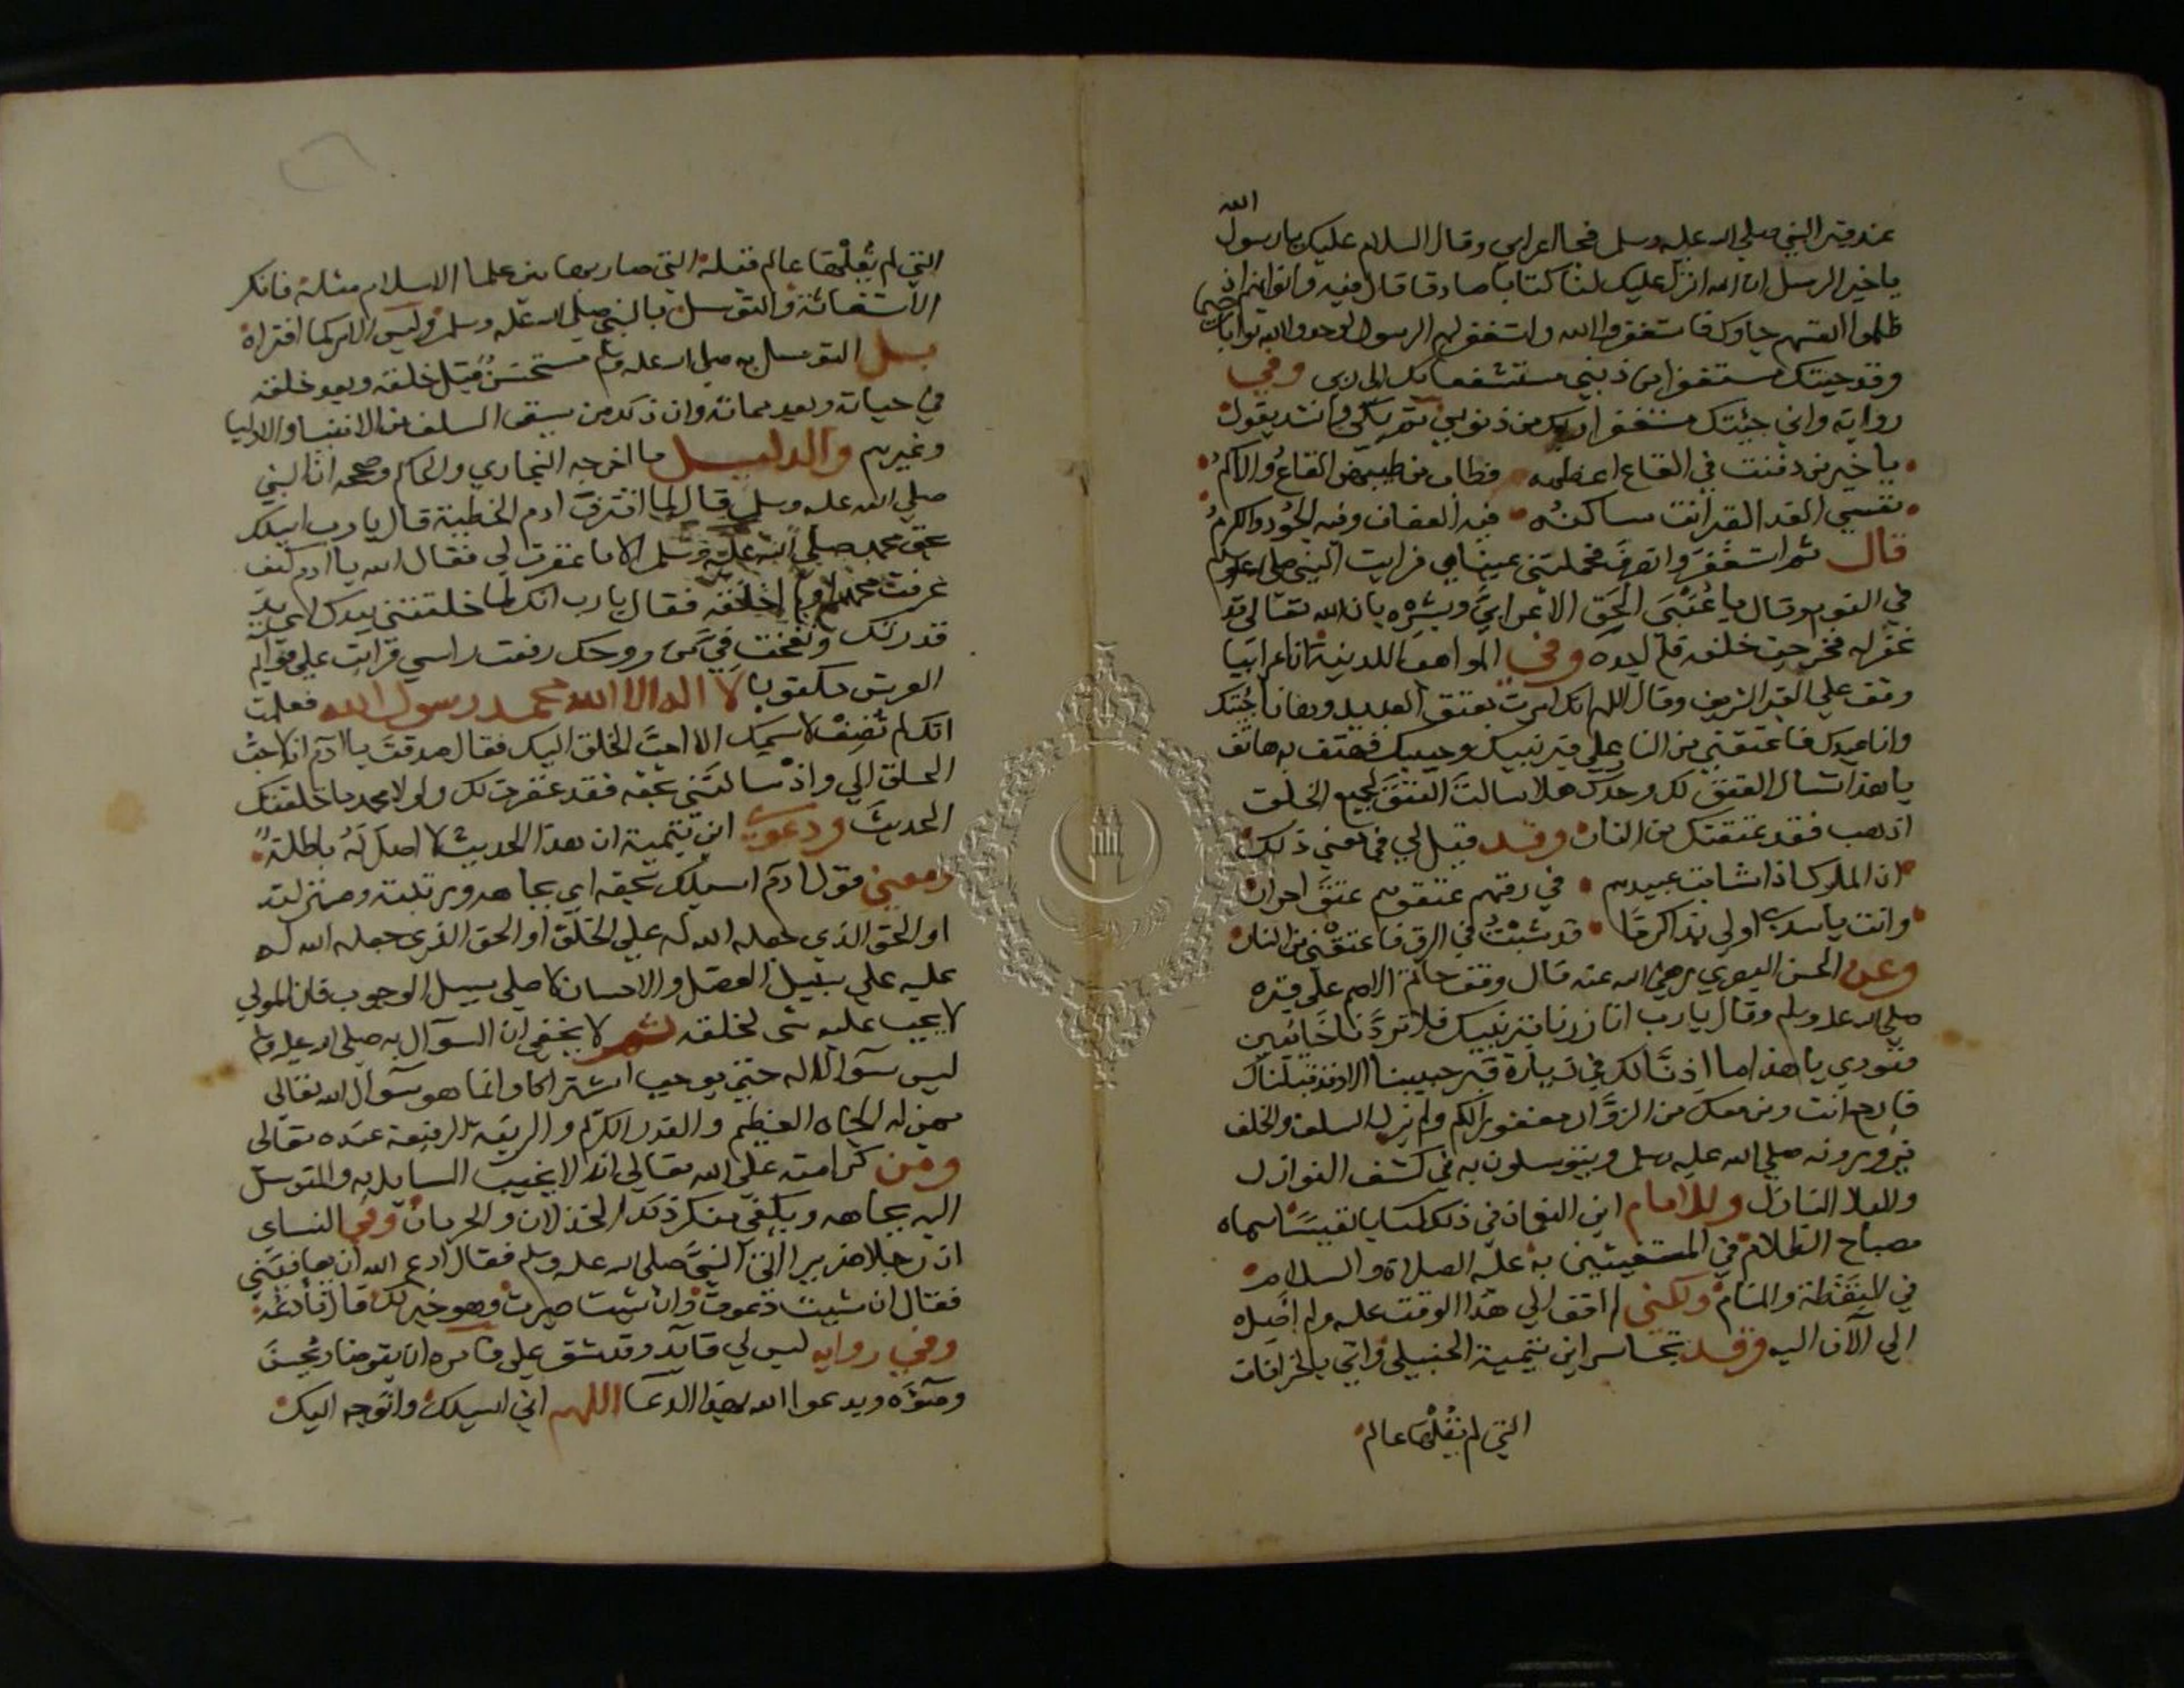 الله
عند قبر النبي صلي الله عليه وسلم فجا اعرابي وقال السلام عليك يا رسول
يا خير الرسل ان الله انزل عليك لنا كتابا صادقا قال فيه ولو انهم اذ
ظلموا انفسهم جاوك فاستغفروا الله واستغفر لهم الرسول لوجدوا الله توابا رحيما
وقد جيتك مستغفرا من ذنبي مستشفعا بك الي ربي وفي
رواية واني جئتك مستغفرا ربك من ذنوبي ثم بكي وانشد يقول
يا خير من دفنت في القاع اعظمه فطاب من طيبهن القاع والاكم
نفسي الفدا لقبر انت ساكنه فيه العفاف وفيه الجود والكرم
قال ثم استغفر وانصرف فحملتني عيناي فرايت النبي صلي الله عليه وسلم
في النوم وقال يا عتبي الحق الاعرابي وبشره بان الله تعالي قد
غفر له فخرجت خلفه فلم اجده وفي المواهب اللدنية ان اعرابيا
وقف علي القبر الشريف وقال اللهم انك امرت بعتق العبيد وها انا جئتك
وانا عبدك فاعتقني من النار علي قبر نبيك وحبيبك فهتف به هاتف
يا هذا تسال العتق لك وحدك هلا سالت العتق لجميع الخلق
اذهب فقد عتقتك من النار وقد قيل لي في معني ذلك
ان الملوك اذا شابت عبيدهم في رقهم عتقوهم عتق احرار
وانت يا سيدي اولي بذا كرما قد شبت في الرق فاعتقني من النار
وعن الحسن البصري رضي الله عنه قال وقف حاتم الاصم علي قبره
صلي الله عليه وسلم وقال يا رب انا زرنا قبر نبيك فلا تردنا خائبين
فنودي يا هذا ما اذنا لك في زيارة قبر حبيبنا الا وقد قبلناك
فارجع انت ومن معك من الزوار مغفورا لكم ولم يزل السلف والخلف
يزورونه صلي الله عليه وسلم ويتوسلون به في كشف النوازل
والبلا النازل وللامام ابن النعمان في ذلك كتابا نفيسا سماه
مصباح الظلام في المستغيثين به عليه الصلاة والسلام
في اليقظة والمنام ولكني لم اقف الي هذا الوقت عليه ولم اصله
الي الآن اليه وقد تجاسر ابن تيمية الحنبيلي واتي بالخرافات
التي لم يقلها عالم
التي لم يقلها عالم قبله التي صار بها بين علما الاسلام مثلة فانكر
الاستغاثة والتوسل بالنبي صلي الله عليه وسلم وليس الامر كما افتراه
بل التوسل به صلي الله عليه وسلم مستحسن قبل خلقه وبعد خلقه
في حياته وبعد مماته وان ذكر من سبق السلف من الانبيا والاوليا
وغيرهم والدليل ما اخرجه البخاري والحاكم وصححه ان النبي
صلي الله عليه وسلم قال لما اقترف ادم الخطيئة قال يا رب اسيلك
بحق محمد صلي الله عليه وسلم الا ما غفرت لي فقال الله يا ادم كيف
عرفت محمدا ولم اخلقه فقال يا رب انك لما خلقتني بيدك
قدرتك ونفخت في من روحك رفعت راسي فرايت علي قوائم
العرش مكتوبا لا اله الا الله محمد رسول الله فعلمت
انك لم تضف لاسمك الا احب الخلق اليك فقال صدقت يا ادم انه لاحب
الخلق الي واذ سالتني بحقه فقد غفرت لك ولولا محمد ما خلقتك
الحديث ودعوي ابن تيمية ان هذا الحديث لا اصل له باطلة
ومعني قول ادم اسيلك بحقه اي بجاهه ومرتبته ومنزلته
او الحق الذي جعله الله له علي الخلق او الحق الذي جعله الله له
عليه علي سبيل الفضل والاحسان لا علي سبيل الوجوب فان المولي
لا يجب عليه شي لخلقه ثم لا يخفي ان السوآل به صلي الله عليه وسلم
ليس سوآلا له حتي يوجب اشتراكا وانما هو سوآل الله تعالي
بمن له الجاه العظيم والقدر الكريم والرتبة الرفيعة عنده تعالي
ومن كرامته علي الله تعالي انه لا يخيب السايل به والمتوسل
اليه بجاهه ويكفي منكر ذلك الخذلان والحرمان وفي النساي
ان رجلا ضريرا اتي النبي صلي الله عليه وسلم فقال ادع الله ان يعافيني
فقال ان شيت دعوت وان شيت صبرت وهو خير لك قال فادعه
وفي رواية ليس لي قايد وقد شق علي فامره ان يتوضا ويحسن
وضوءه ويدعوا الله بهذا الدعا اللهم اني اسيلك واتوجه اليك